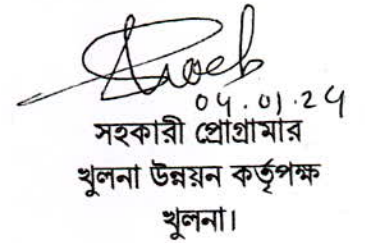 04.01.24
সহকারী প্রোগ্রামার
খুলনা উন্নয়ন কর্তৃপক্ষ
খুলনা।